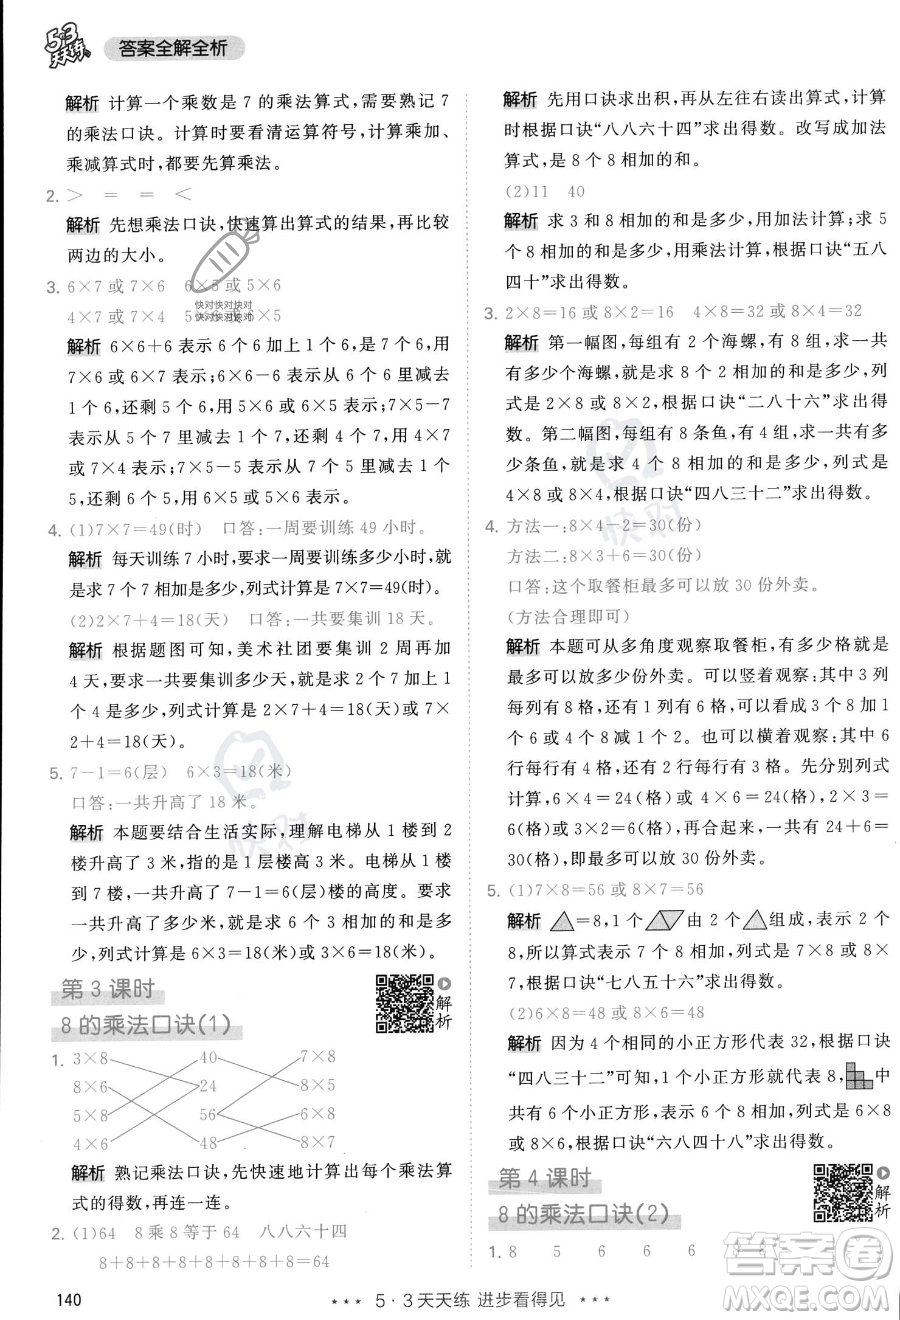 5·3天天练
答案全解全析
解析 计算一个乘数是 7 的乘法算式，需要熟记 7
的乘法口诀。计算时要看清运算符号，计算乘加、
乘减算式时，都要先算乘法。
2. ＞ ＝ ＝ ＜
解析 先想乘法口诀，快速算出算式的结果，再比较
两边的大小。
3. 6×7 或 7×6 6×5 或 5×6
4×7 或 7×4
解析 6×6＋6 表示 6 个 6 加上 1 个 6，可以用
7×6 或 6×7 表示；6×6－6 表示从 6 个 6 里减去
1 个 6，还剩 5 个 6，用 5×6 或 6×5 表示；5×7－7
表示从 5 个 7 里减去 1 个 7，还剩 4 个 7，用 4×7
或 7×4 表示；7×5－5 表示从 7 个 5 里减去 1 个
5，还剩 6 个 5，用 5×6 或 6×5 表示。
4. (1)7×7＝49(时) 口答：一周要训练 49 小时。
解析 每天训练 7 小时，要求一周要训练多少小时，
就是求 7 个 7 相加是多少，列式计算是 7×7＝49(时)。
(2)2×7＋4＝18(天) 口答：一共要集训 18 天。
解析 根据题图可知，美术社团要集训 2 周再加
4 天，要求一共要集训多少天，就是求 2 个 7 加上
1 个 4 是多少，列式计算是 2×7＋4＝18(天)或 7×
2＋4＝18(天)。
5. 7－1＝6(层) 6×3＝18(米)
口答：一共升高了 18 米。
解析 本题要结合生活实际，理解电梯从 1 楼到 2
楼升高了 3 米，就是 1 层楼高 3 米。电梯从 1 楼到
7 楼，一共升高了 7－1＝6(层)楼的高度。要求
一共升高了多少米，就是求 6 个 3 相加的和是多
少，列式计算是 6×3＝18(米)或 3×6＝18(米)。
第 3 课时
8 的乘法口诀(1)
解析
1. 3×8 40 7×8
8×6 24 8×5
5×8 56 6×8
4×6 48 8×7
解析 熟记乘法口诀，先快速地计算出每个乘法算
式的得数，再连一连。
2. (1)64 8 乘 8 等于 64 八八六十四
8＋8＋8＋8＋8＋8＋8＋8＝64
解析 先用口诀求出积，再从左往右读出算式，计算
时根据口诀“八八六十四”求出得数。改写成加法
算式，是 8 个 8 相加的和。
(2)11 40
解析 求 3 和 8 相加的和是多少，用加法计算；求 5
个 8 相加的和是多少，用乘法计算，根据口诀“五八
四十”求出得数。
3. 2×8＝16 或 8×2＝16 4×8＝32 或 8×4＝32
解析 第一幅图，每组有 2 个海螺，有 8 组，求一共
有多少个海螺，就是求 8 个 2 相加的和是多少，列
式是 2×8 或 8×2，根据口诀“二八十六”求出得
数。第二幅图，每组有 8 条鱼，有 4 组，求一共有
多少条鱼，就是求 4 个 8 相加的和是多少，列式是
4×8 或 8×4，根据口诀“四八三十二”求出得数。
4. 方法一：8×4－2＝30(份)
方法二：8×3＋6＝30(份)
口答：这个取餐柜最多可以放 30 份外卖。
(方法合理即可)
解析 本题可从多角度观察取餐柜，有多少格就是
最多可以放多少份外卖。可以竖着观察，其中 3 列
每列有 8 格，还有 1 列有 6 格；也可以看成有 4 列，
每列有 8 格，再减去 2 格。也可以横着观察，其中 6
行每行有 4 格，还有 2 行每行有 3 格。先分别列式
计算，6×4＝24(格)或 4×6＝24(格)，2×3＝
6(格)或 3×2＝6(格)，再合起来，一共有 24＋6＝
30(格)，即最多可以放 30 份外卖。
5. (1)7×8＝56 或 8×7＝56
解析 ＝8，1 个 由 2 个 组成，表示 2 个
8，所以算式表示 7 个 8 相加，列式是 7×8 或 8×
7，根据口诀“七八五十六”求出得数。
(2)6×8＝48 或 8×6＝48
解析 因为 4 个相同的小正方形代表 32，根据口诀
“四八三十二”可知，1 个小正方形就代表 8， 中
共有 6 个小正方形，表示 6 个 8 相加，列式是 6×8
或 8×6，根据口诀“六八四十八”求出得数。
第 4 课时
8 的乘法口诀(2)
解析
1. 8 5 6 6 6 8 8
140
5·3 天天练 进步看得见